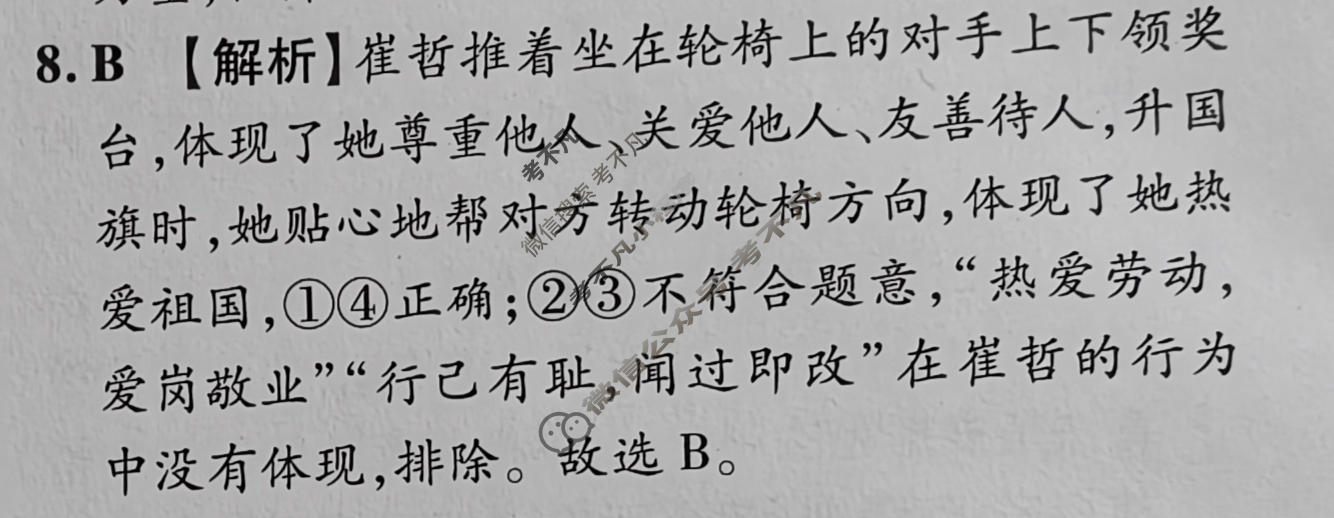 8. B 【解析】崔哲推着坐在轮椅上的对手上下领奖
台,体现了她尊重他人、关爱他人、友善待人,升国
旗时,她贴心地帮对方转动轮椅方向,体现了她热
爱祖国,①④正确;②③不符合题意,“热爱劳动,
爱岗敬业”“行己有耻,闻过即改”在崔哲的行为
中没有体现,排除。故选 B。
考不凡
微信搜索 考不凡